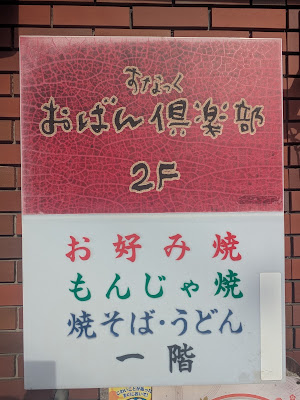 すなっく
おばん倶楽部
2F
お好み焼
もんじゃ焼
焼そば・うどん
一階